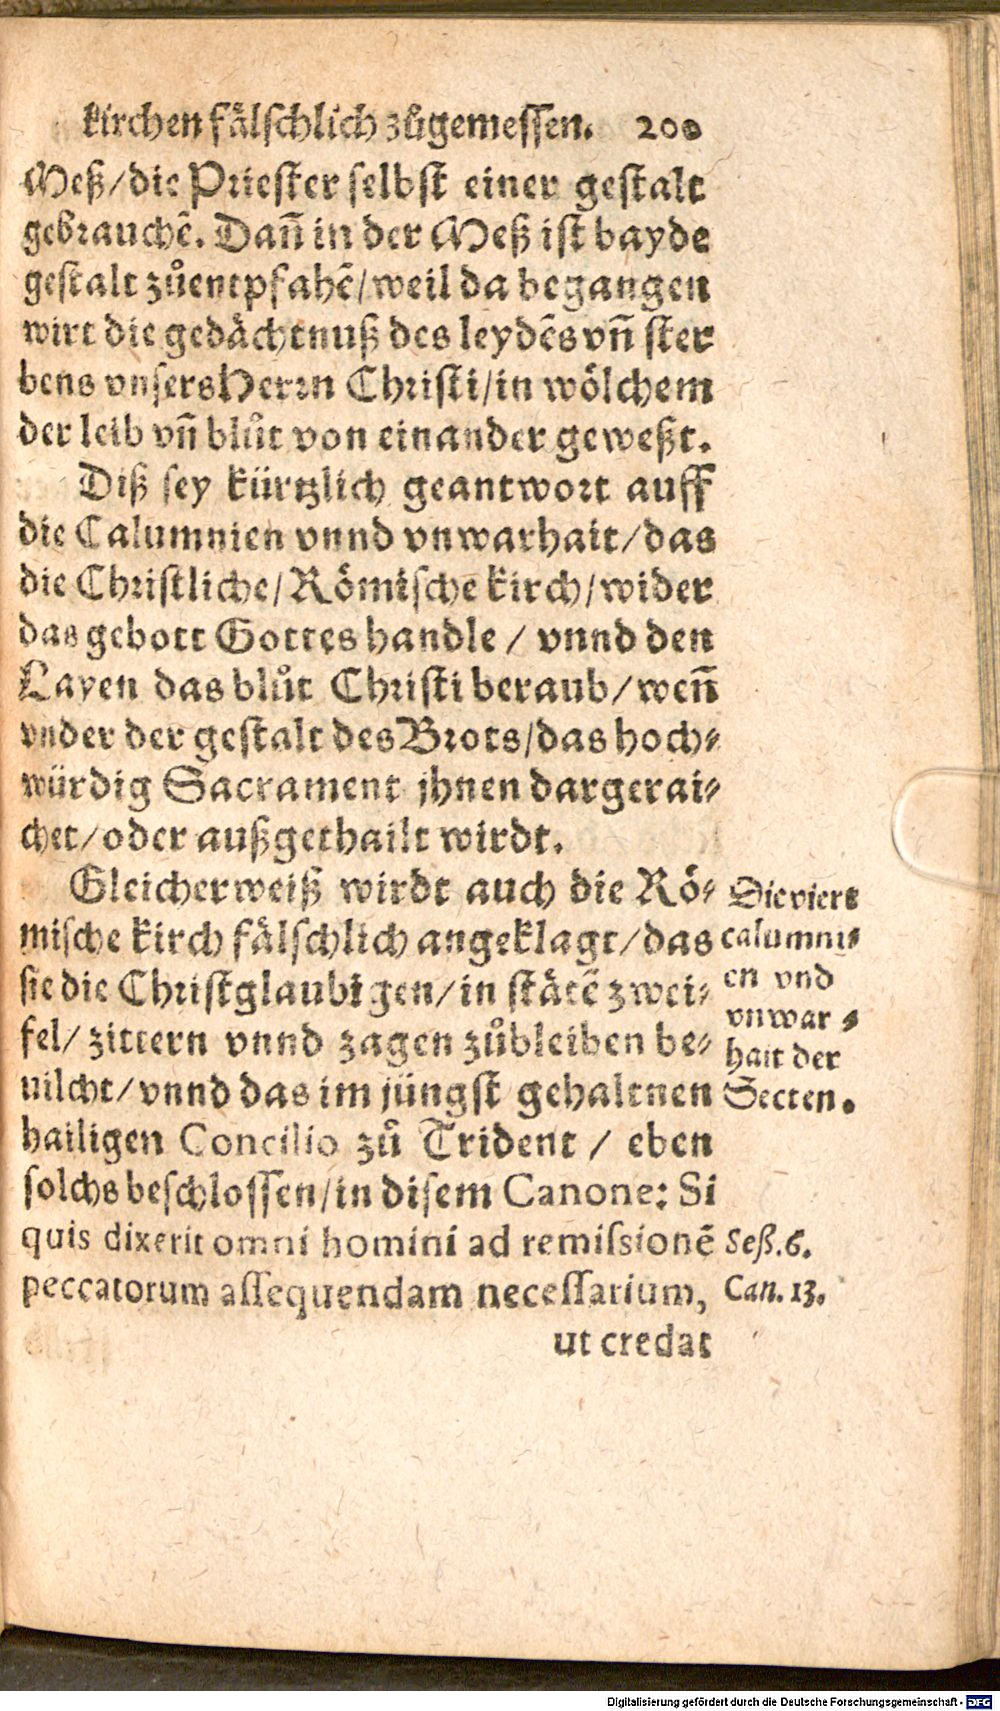 kirchen fålschlich zůgemessen. 200
Meß/die Priester selbst einer gestalt
gebrauchẽ. Dañ in der Meß ist bayde
gestalt zůentpfahẽ/weil da begangen
wirt die gedåchtnuß des leydẽs vñ ster
bens vnsers Herrn Christi/in wölchem
der leib vñ blůt von einander geweßt.
Diß sey kürtzlich geantwort auff
die Calumnien vnnd vnwarhait/das
die Christliche/Römische kirch/wider
das gebott Gottes handle / vnnd den
Layen das blůt Christi beraub/weñ
vnder der gestalt des Brots/das hoch-
würdig Sacrament jhnen dargerai-
chet/oder außgethailt wirdt.
Gleicherweiß wirdt auch die Rö-
mische kirch fålschlich angeklagt/das
sie die Christglaubigen/in ståtẽ zwei-
fel/ zittern vnnd zagen zůbleiben be-
uilcht/vnnd das im jüngst gehaltnen
hailigen Concilio zů Trident / eben
solchs beschlossen/in disem Canone: Si
quis dixerit omni homini ad remissionẽ
peccatorum assequendam necessarium,
ut credat
Die viert
calumni-
en vnd
vnwar-
hait der
Secten.
Seß.6.
Can. 13.
Digitalisierung gefördert durch die Deutsche Forschungsgemeinschaft - DFG